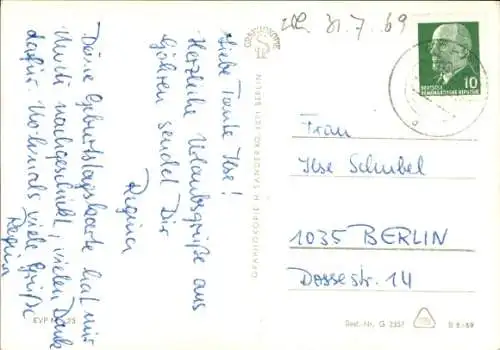 Liebe Tante Ilse!
Herzliche Urlaubsgrüße aus
Göhren sendet Dir
Regina
Deine Geburtstagskarte hat mir
Mutti nachgeschickt, vielen Dank
dafür. Nochmals viele Grüße
Regina
EVP
GRAPHOKOPIE H. SANDER KG, 1071 BERLIN
31.7.69
10
DEUTSCHE
DEMOKRATISCHE REPUBLIK
Frau
Ilse Schubel
1035 BERLIN
Dossestr. 14
Best.-Nr. G 2357